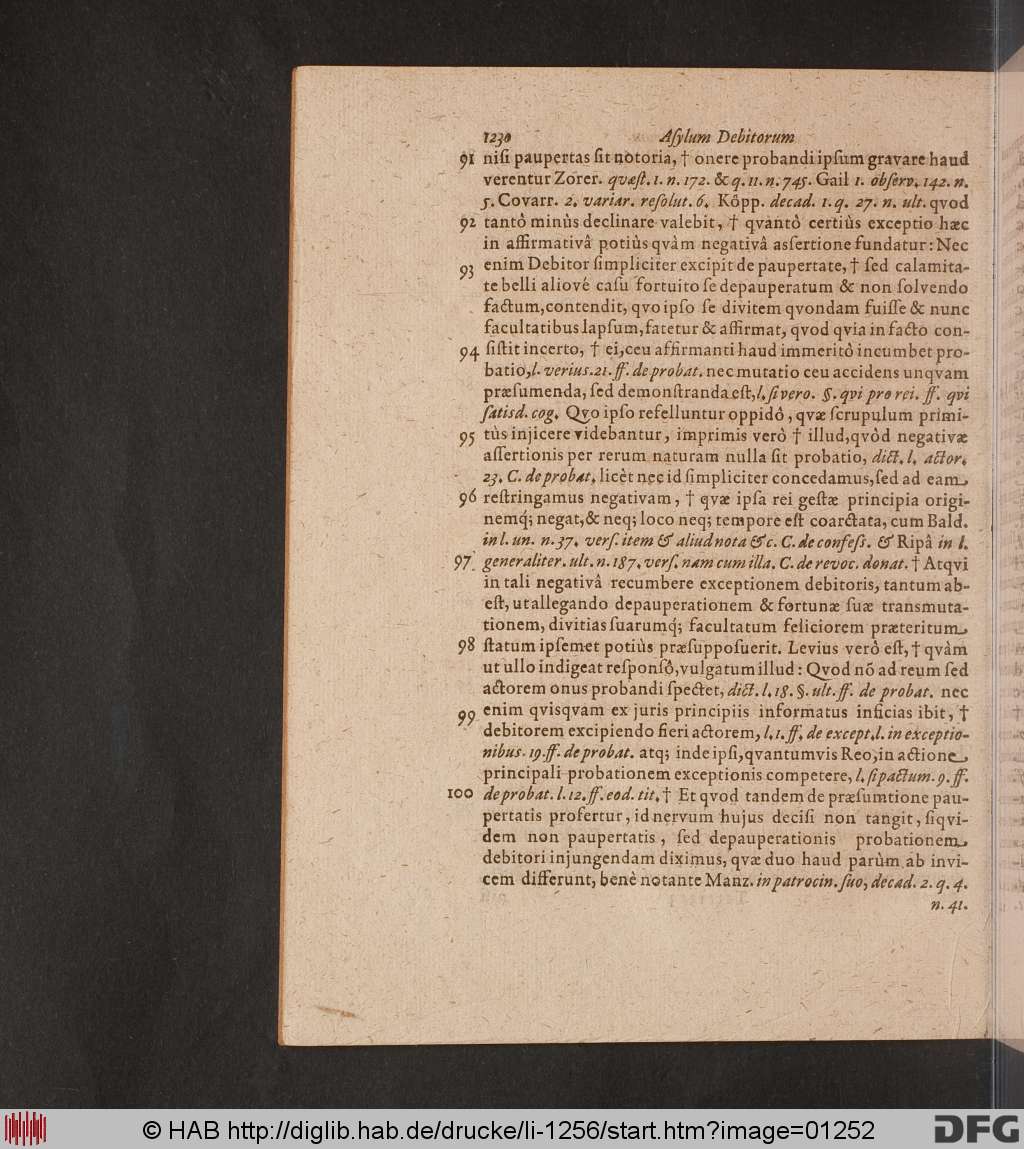 1230 Aſylum Debitorum
91 niſi paupertas ſit notoria, † onere probandi ipſum gravare haud
verentur Zorer. quæſt. 1. n. 172. & q. 11. n. 745. Gail 1. obſerv. 142. n.
5. Covarr. 2. variar. reſolut. 6. Kôpp. decad. 1. q. 27. n. ult. qvod
92 tantô minùs declinare valebit, † qvantô certiùs exceptio hæc
in affirmativâ potiùs qvàm negativâ asſertione fundatur: Nec
93 enim Debitor ſimpliciter excipit de paupertate, † ſed calamita-
te belli aliové caſu fortuito ſe depauperatum & non ſolvendo
factum, contendit, qvo ipſo ſe divitem qvondam fuiſſe & nunc
facultatibus lapſum, fatetur & affirmat, qvod qvia in facto con-
94 ſiſtit incerto, † ei, ceu affirmanti haud immeritò incumbet pro-
batio, l. verius. 21. ff. de probat. nec mutatio ceu accidens unqvam
præſumenda, ſed demonſtranda eſt, l. ſi vero. §. qvi pro rei. ff. qvi
ſatisd. cog. Qvo ipſo refelluntur oppidô, qvæ ſcrupulum primi-
95 tùs injicere videbantur, imprimis verò † illud, qvòd negativæ
aſſertionis per rerum naturam nulla ſit probatio, dict. l. actor.
23. C. de probat. licèt nec id ſimpliciter concedamus, ſed ad eam
96 reſtringamus negativam, † qvæ ipſa rei geſtæ principia origi-
nemq́; negat, & neq; loco neq; tempore eſt coarctata, cum Bald.
in l. un. n. 37. verſ. item & aliud nota &c. C. de confeſſ. & Ripâ in l.
97 generaliter. ult. n. 187. verſ. nam cum illa. C. de revoc. donat. † Atqvi
in tali negativâ recumbere exceptionem debitoris, tantum ab-
eſt, ut allegando depauperationem & fortunæ ſuæ transmuta-
tionem, divitias ſuarumq́; facultatum feliciorem præteritum
98 ſtatum ipſemet potiùs præſuppoſuerit. Levius verò eſt, † qvàm
ut ullo indigeat reſponſô, vulgatum illud: Qvod nō ad reum ſed
actorem onus probandi ſpectet, dict. l. 18. §. ult. ff. de probat. nec
99 enim qvisqvam ex juris principiis informatus inficias ibit, †
debitorem excipiendo fieri actorem, l. 1. ff. de except. l. in exceptio-
nibus. 19. ff. de probat. atq; inde ipſi, qvantumvis Reo, in actione
principali probationem exceptionis competere, l. ſi pactum. 9. ff.
100 de probat. l. 12. ff. eod. tit. † Et qvod tandem de præſumtione pau-
pertatis profertur, id nervum hujus deciſi non tangit, ſiqvi-
dem non paupertatis, ſed depauperationis probationem
debitori injungendam diximus, qvæ duo haud parùm ab invi-
cem differunt, benè notante Manz. in patrocin. ſuo, decad. 2. q. 4.
n. 41.
© HAB http://diglib.hab.de/drucke/li-1256/start.htm?image=01252
DFG